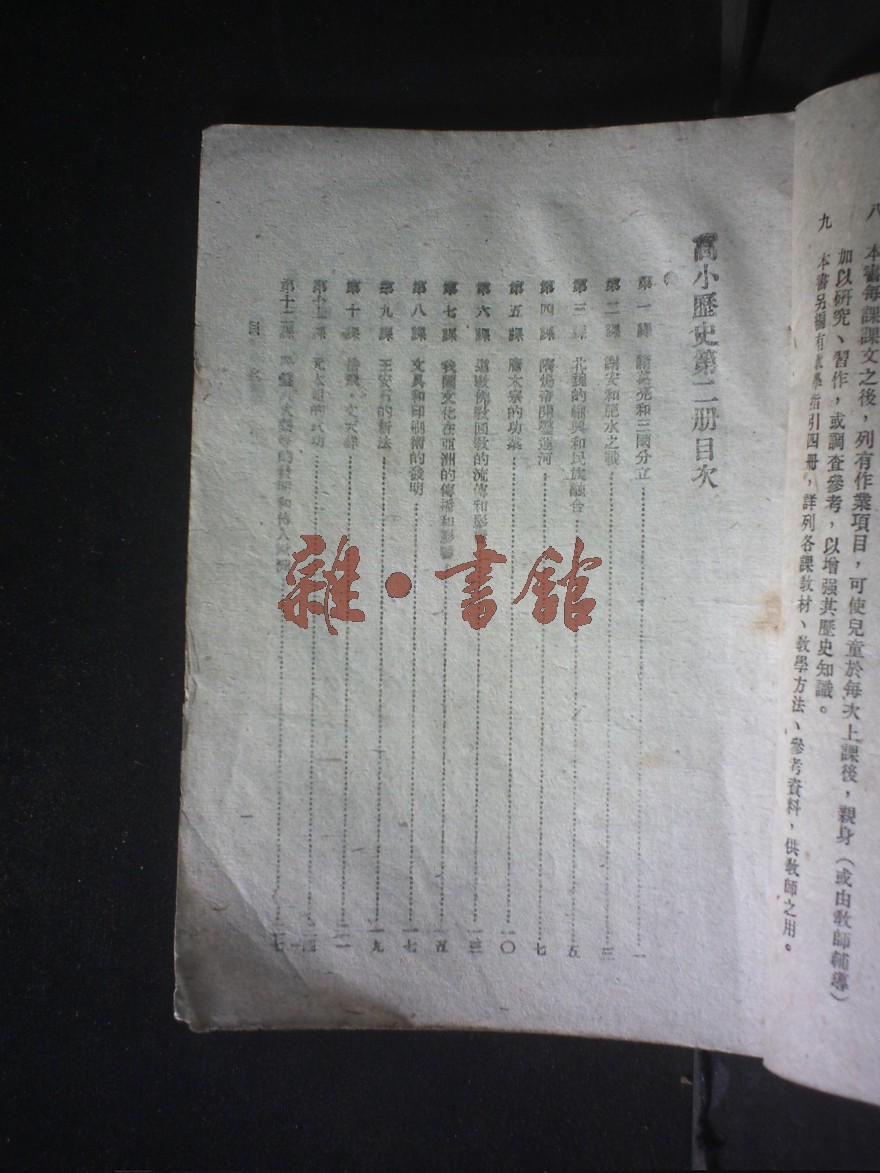 八 本書每課課文之後，列有作業項目，可使兒童於每次上課後，親身（或由教師輔導）
加以研究、習作，或調查參考，以增强其歷史知識。
九 本書另編有教學指引四冊，詳列各課教材、教學方法、參考資料，供教師之用。
高小歷史第二册目次
第一課 諸葛亮和三國分立 一
第二課 謝安和肥水之戰 三
第三課 北魏的興和民族融合 五
第四課 隋煬帝開鑿運河 七
第五課 唐太宗的功業 一〇
第六課 道教佛教回教的流傳和影 一三
第七課 我國文化在亞洲的傳播和影響 一五
第八課 文具和印刷術的發明 一七
第九課 王安石的新法 一九
第十課 岳飛、文天祥 二一
第十一課 元太祖的武功 二四
第十二課 大發 二七
目
一
雜·書館